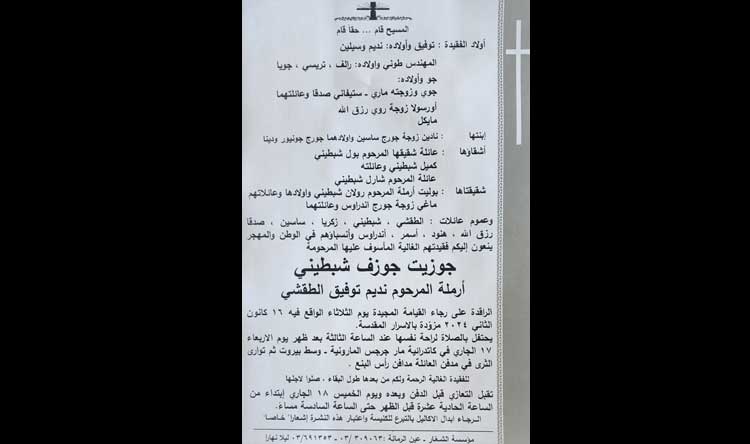 المسيح قام ... حقا قام
أولاد الفقيدة : توفيق وأولاده: نديم وسيلين
المهندس طوني واولاده: رالف ، تريسي ، جويا
جو وأولاده:
جوي وزوجته ماري - ستيفاني صدقا وعائلتهما
أورسولا زوجة روي رزق الله
مايكل
إبنتها : نادين زوجة جورج ساسين واولادهما جورج جونيور ودينا
أشقاؤها : عائلة شقيقها المرحوم بول شبطيني
كميل شبطيني وعائلته
عائلة المرحوم شارل شبطيني
شقيقتاها : بوليت أرملة المرحوم رولان شبطيني واولادها وعائلاتهم
ماغي زوجة جورج اندراوس وعائلتهما
وعموم عائلات : الطقشي ، شبطيني ، زكريا ، ساسين ، صدقا
رزق الله ، هنود ، أسمر ، أندراوس وأنسباؤهم في الوطن والمهجر
ينعون إليكم فقيدتهم الغالية المأسوف عليها المرحومة
جوزيت جوزف شبطيني
أرملة المرحوم نديم توفيق الطقشي
الراقدة على رجاء القيامة المجيدة يوم الثلاثاء الواقع فيه ١٦ كانون
الثاني ٢٠٢٤ مزوّدة بالاسرار المقدسة.
يحتفل بالصلاة لراحة نفسها عند الساعة الثالثة بعد ظهر يوم الاربعاء
١٧ الجاري في كاتدرائية مار جرجس المارونية - وسط بيروت ثم توارى
الثرى في مدفن العائلة مدافن رأس النبع .
للفقيدة الغالية الرحمة ولكم من بعدها طول البقاء ، صلوا لاجلها
تقبل التعازي قبل الدفن وبعده ويوم الخميس ١٨ الجاري إبتداء من
الساعة الحادية عشرة قبل الظهر حتى الساعة السادسة مساءً.
الرجاء ابدال الاكاليل بالتبرع للكنيسة واعتبار هذه النشرة إشعارا" خاصا"
مؤسسة الشغار - عين الرمانة :٠٣/٣٠٩٠٦٣ - ٠٣/٦٩١٣٥٣ ليلا نهارا